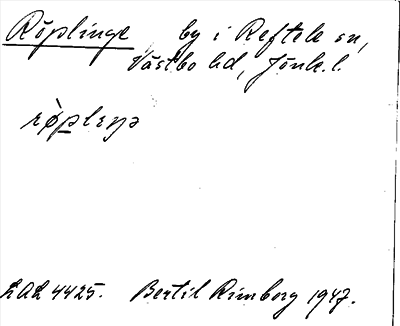 Röplinge by i Reftele sn,
Västbo hd, Jönk. l.
røplɛŋə
LAL 4425. Bertil Rimborg 1947.